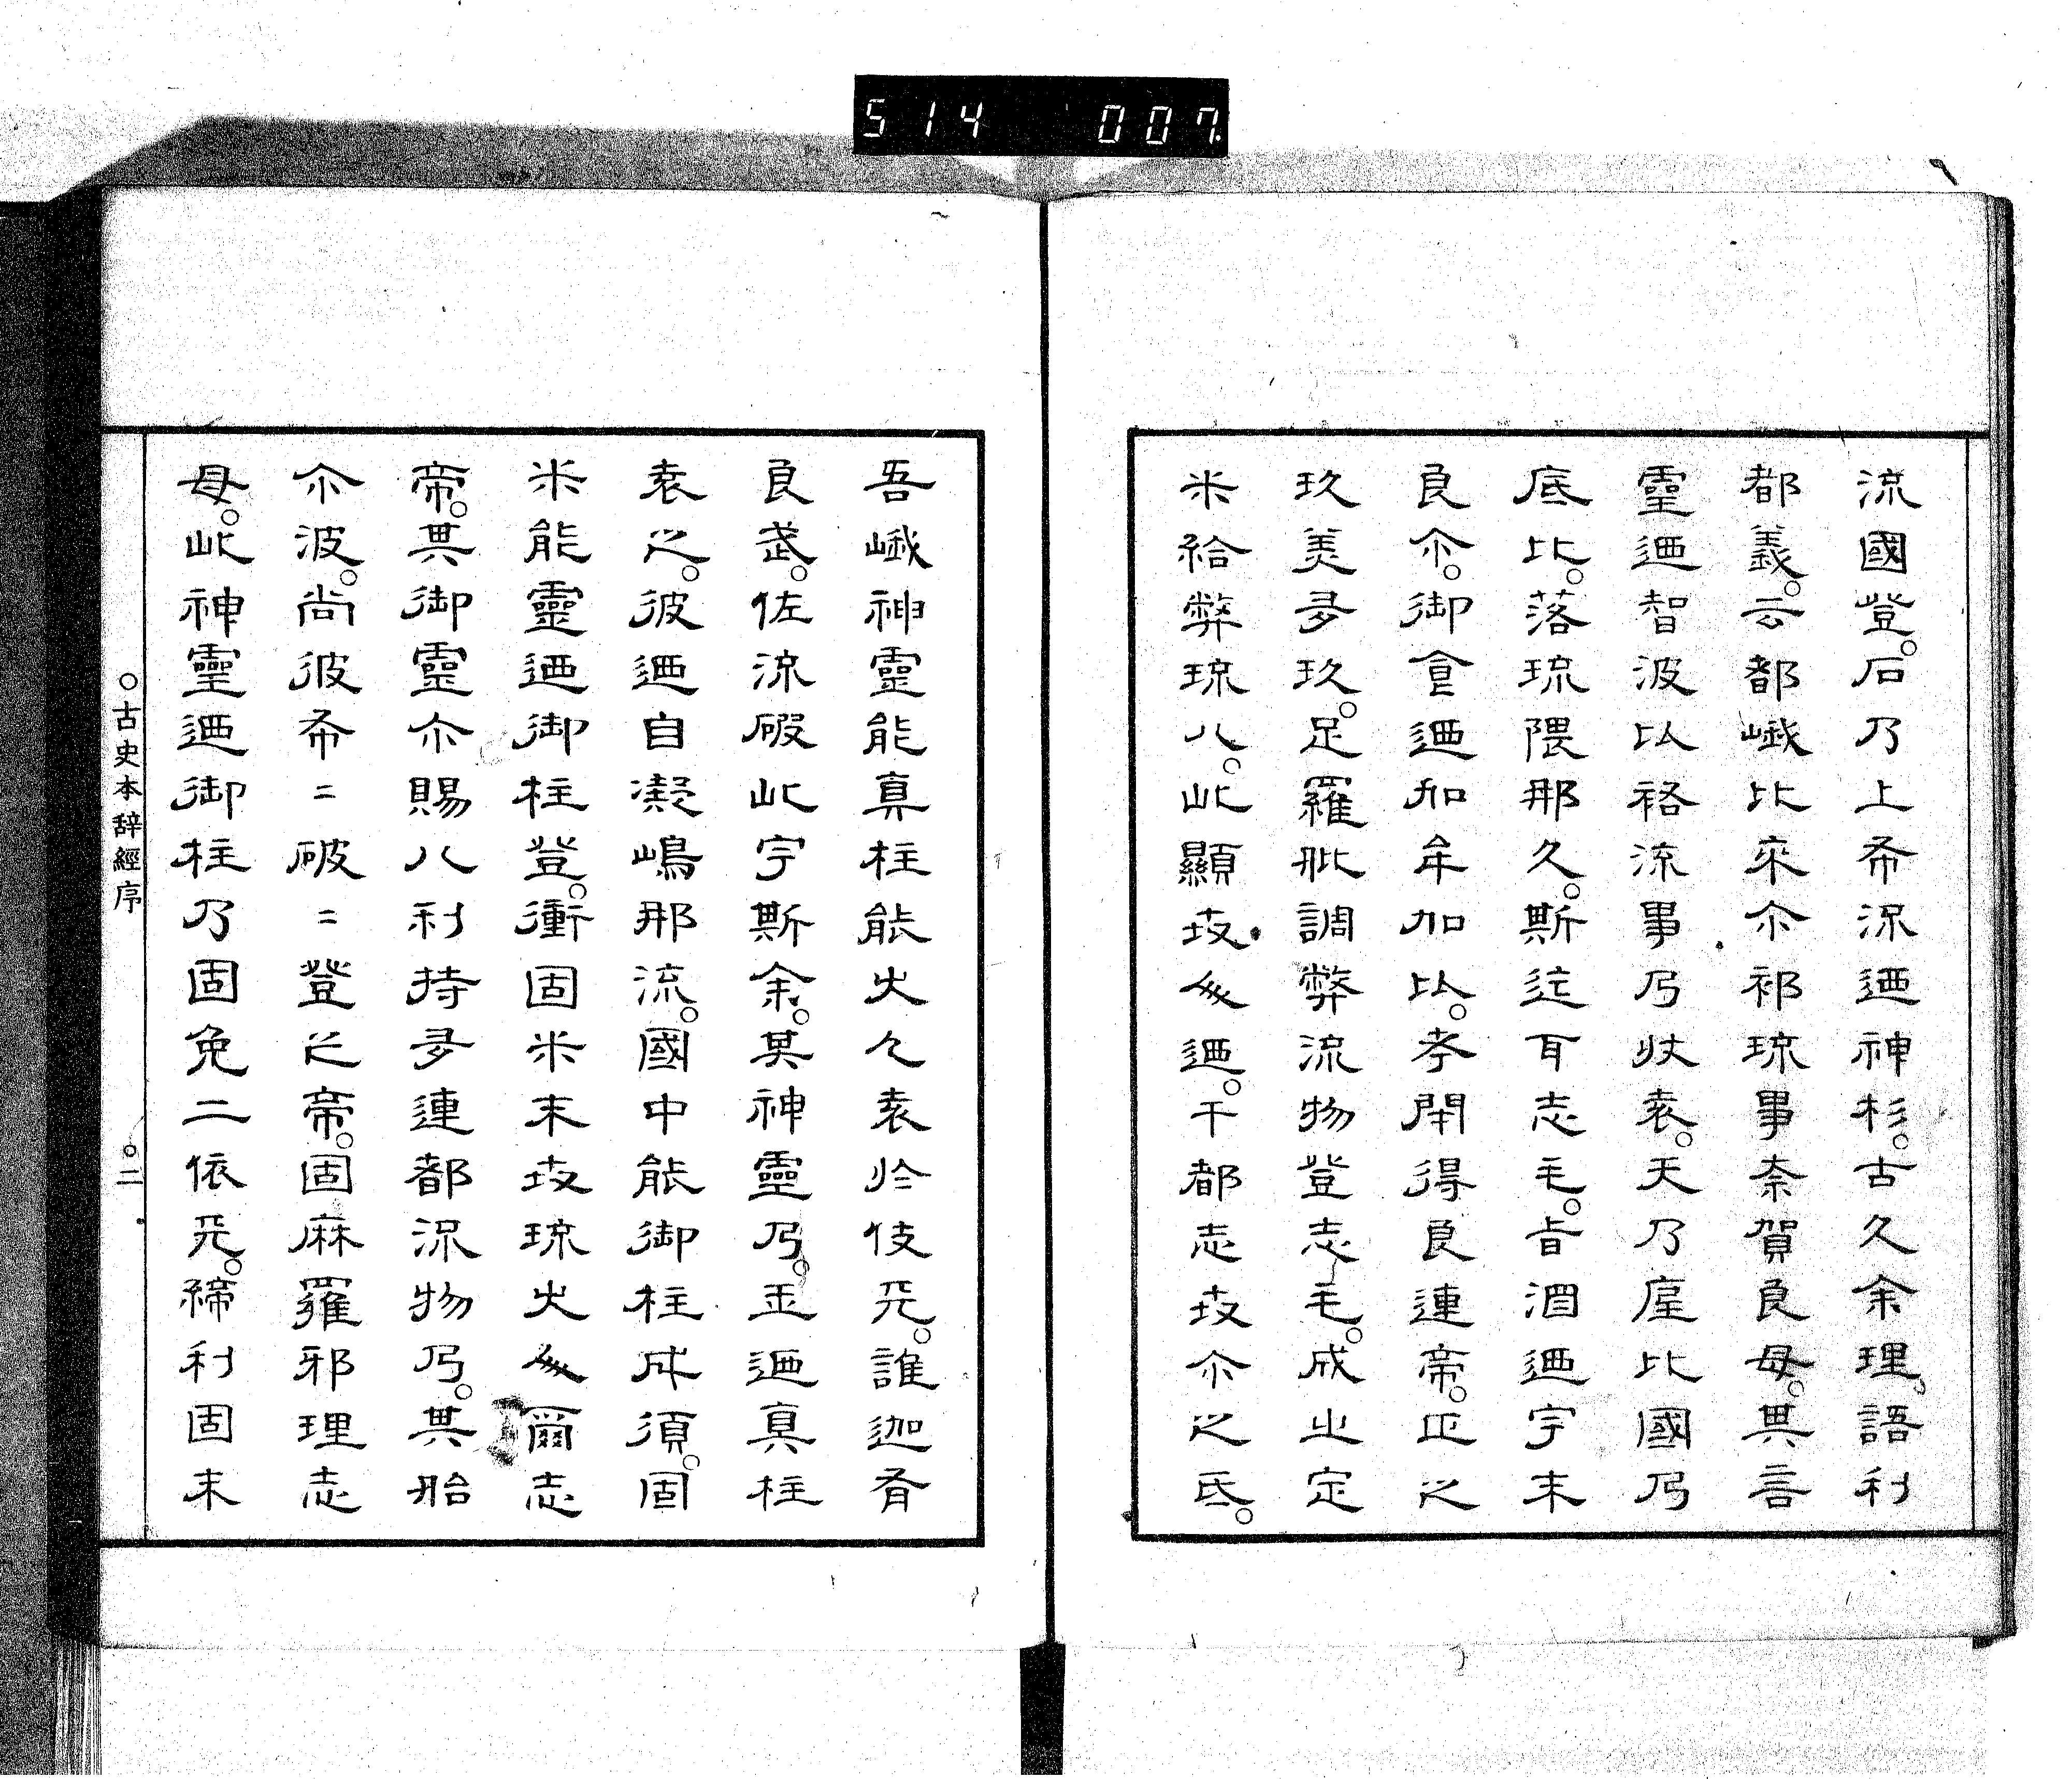 514 007.
流國登。石乃上希流迺神杉。古久余理。語利
都義。云都峨比來尒祁琉事奈賀良母。其言
靈迺智波以袼流事乃狀袁。天乃窟比國乃
底比。落琉隈那久。斯迮耳志毛。旨酒迺宇末
良尒。御食迺加牟加比。孝閇得良連帝。正之
玖美多玖。足羅批調弊流物登志毛。成之定
米給弊琉八。此顯弖迺。千都志弖尒之氐。
吾峨神靈能真柱能火久袁伱伎弖。誰迦有
良武。佐流碬此宇斯余。其神靈乃。玉迺真柱
袁之。彼迺自凝嶋那流。國中能御柱成須。固
米能靈迺御柱登。衝固米末弖琉火爾志
帝。其御靈尒賜八利持多連都流物乃。其胎
尒波。尚彼希二破二登之帝。固麻羅邪理志
母。此神靈迺御柱乃固免二依弖。締利固末
○古史本辭經序 ○二